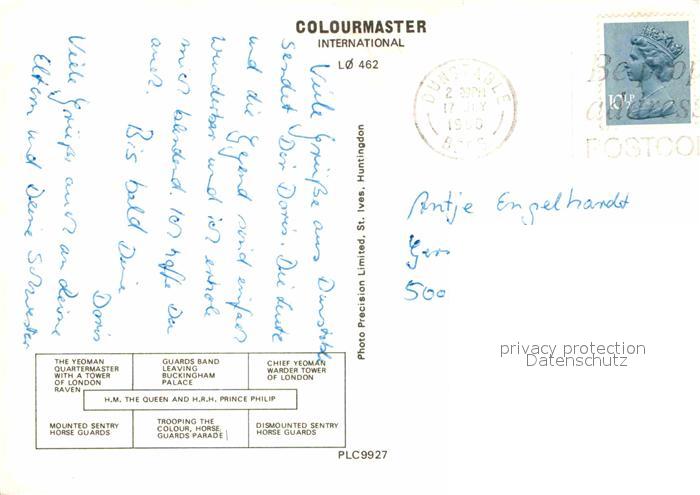 COLOURMASTER
INTERNATIONAL
LØ 462
Viele Grüße aus Dunstable
sendet Dir Doris. Die Leute
und die Gegend sind einfach
wunderbar und ich erhole
mich blendend. Ich hoffe Du
auch. Bis bald Deine
Doris
Viele Grüße auch an Deine
Eltern und Deine Schwester
Photo Precision Limited, St. Ives, Huntingdon
DUNSTABLE
17 JLY
BEDS
10½P
POSTCO
Antje Engelhardt
500
privacy protection
Datenschutz
THE YEOMAN
QUARTERMASTER
WITH A TOWER
OF LONDON
RAVEN
GUARDS BAND
LEAVING
BUCKINGHAM
PALACE
CHIEF YEOMAN
WARDER TOWER
OF LONDON
H.M. THE QUEEN AND H.R.H. PRINCE PHILIP
MOUNTED SENTRY
HORSE GUARDS
TROOPING THE
COLOUR, HORSE
GUARDS PARADE
DISMOUNTED SENTRY
HORSE GUARDS
PLC9927